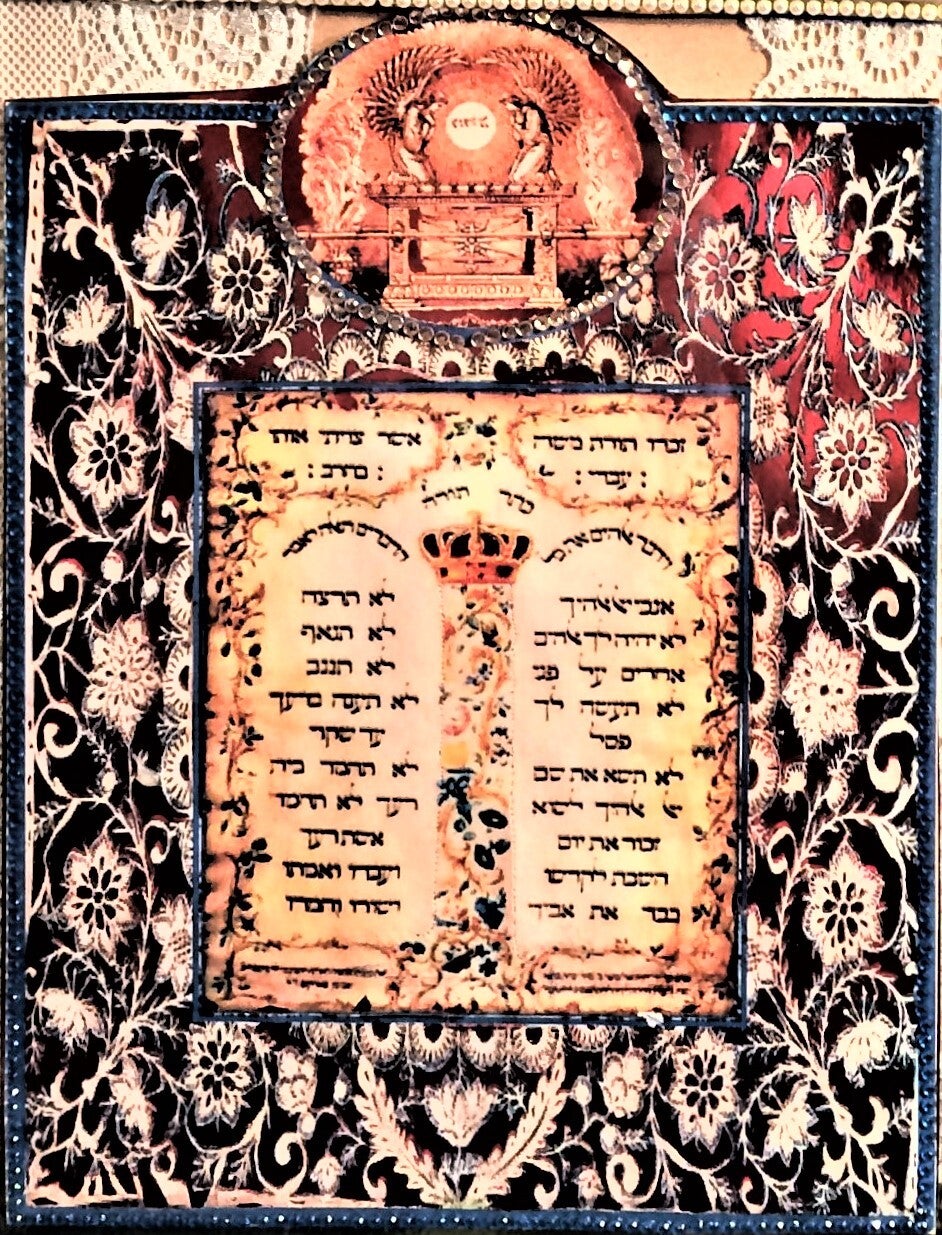 זכרו תורת משה
: עבדי :
אשר צויתי אותו
: בחרב :
כתר תורה
וידבר אלהים את כל
הדברים האלה לאמר
אנכי יי אלהיך
לא יהיה לך אלהים
אחרים על פני
לא תעשה לך
פסל
לא תשא את שם
אלהיך לשוא
זכור את יום
השבת לקדשו
כבד את אביך
לא תרצח
לא תנאף
לא תגנב
לא תענה ברעך
עד שקר
לא תחמד בית
רעך לא תחמד
אשת רעך
ועבדו ואמתו
ושורו וחמרו